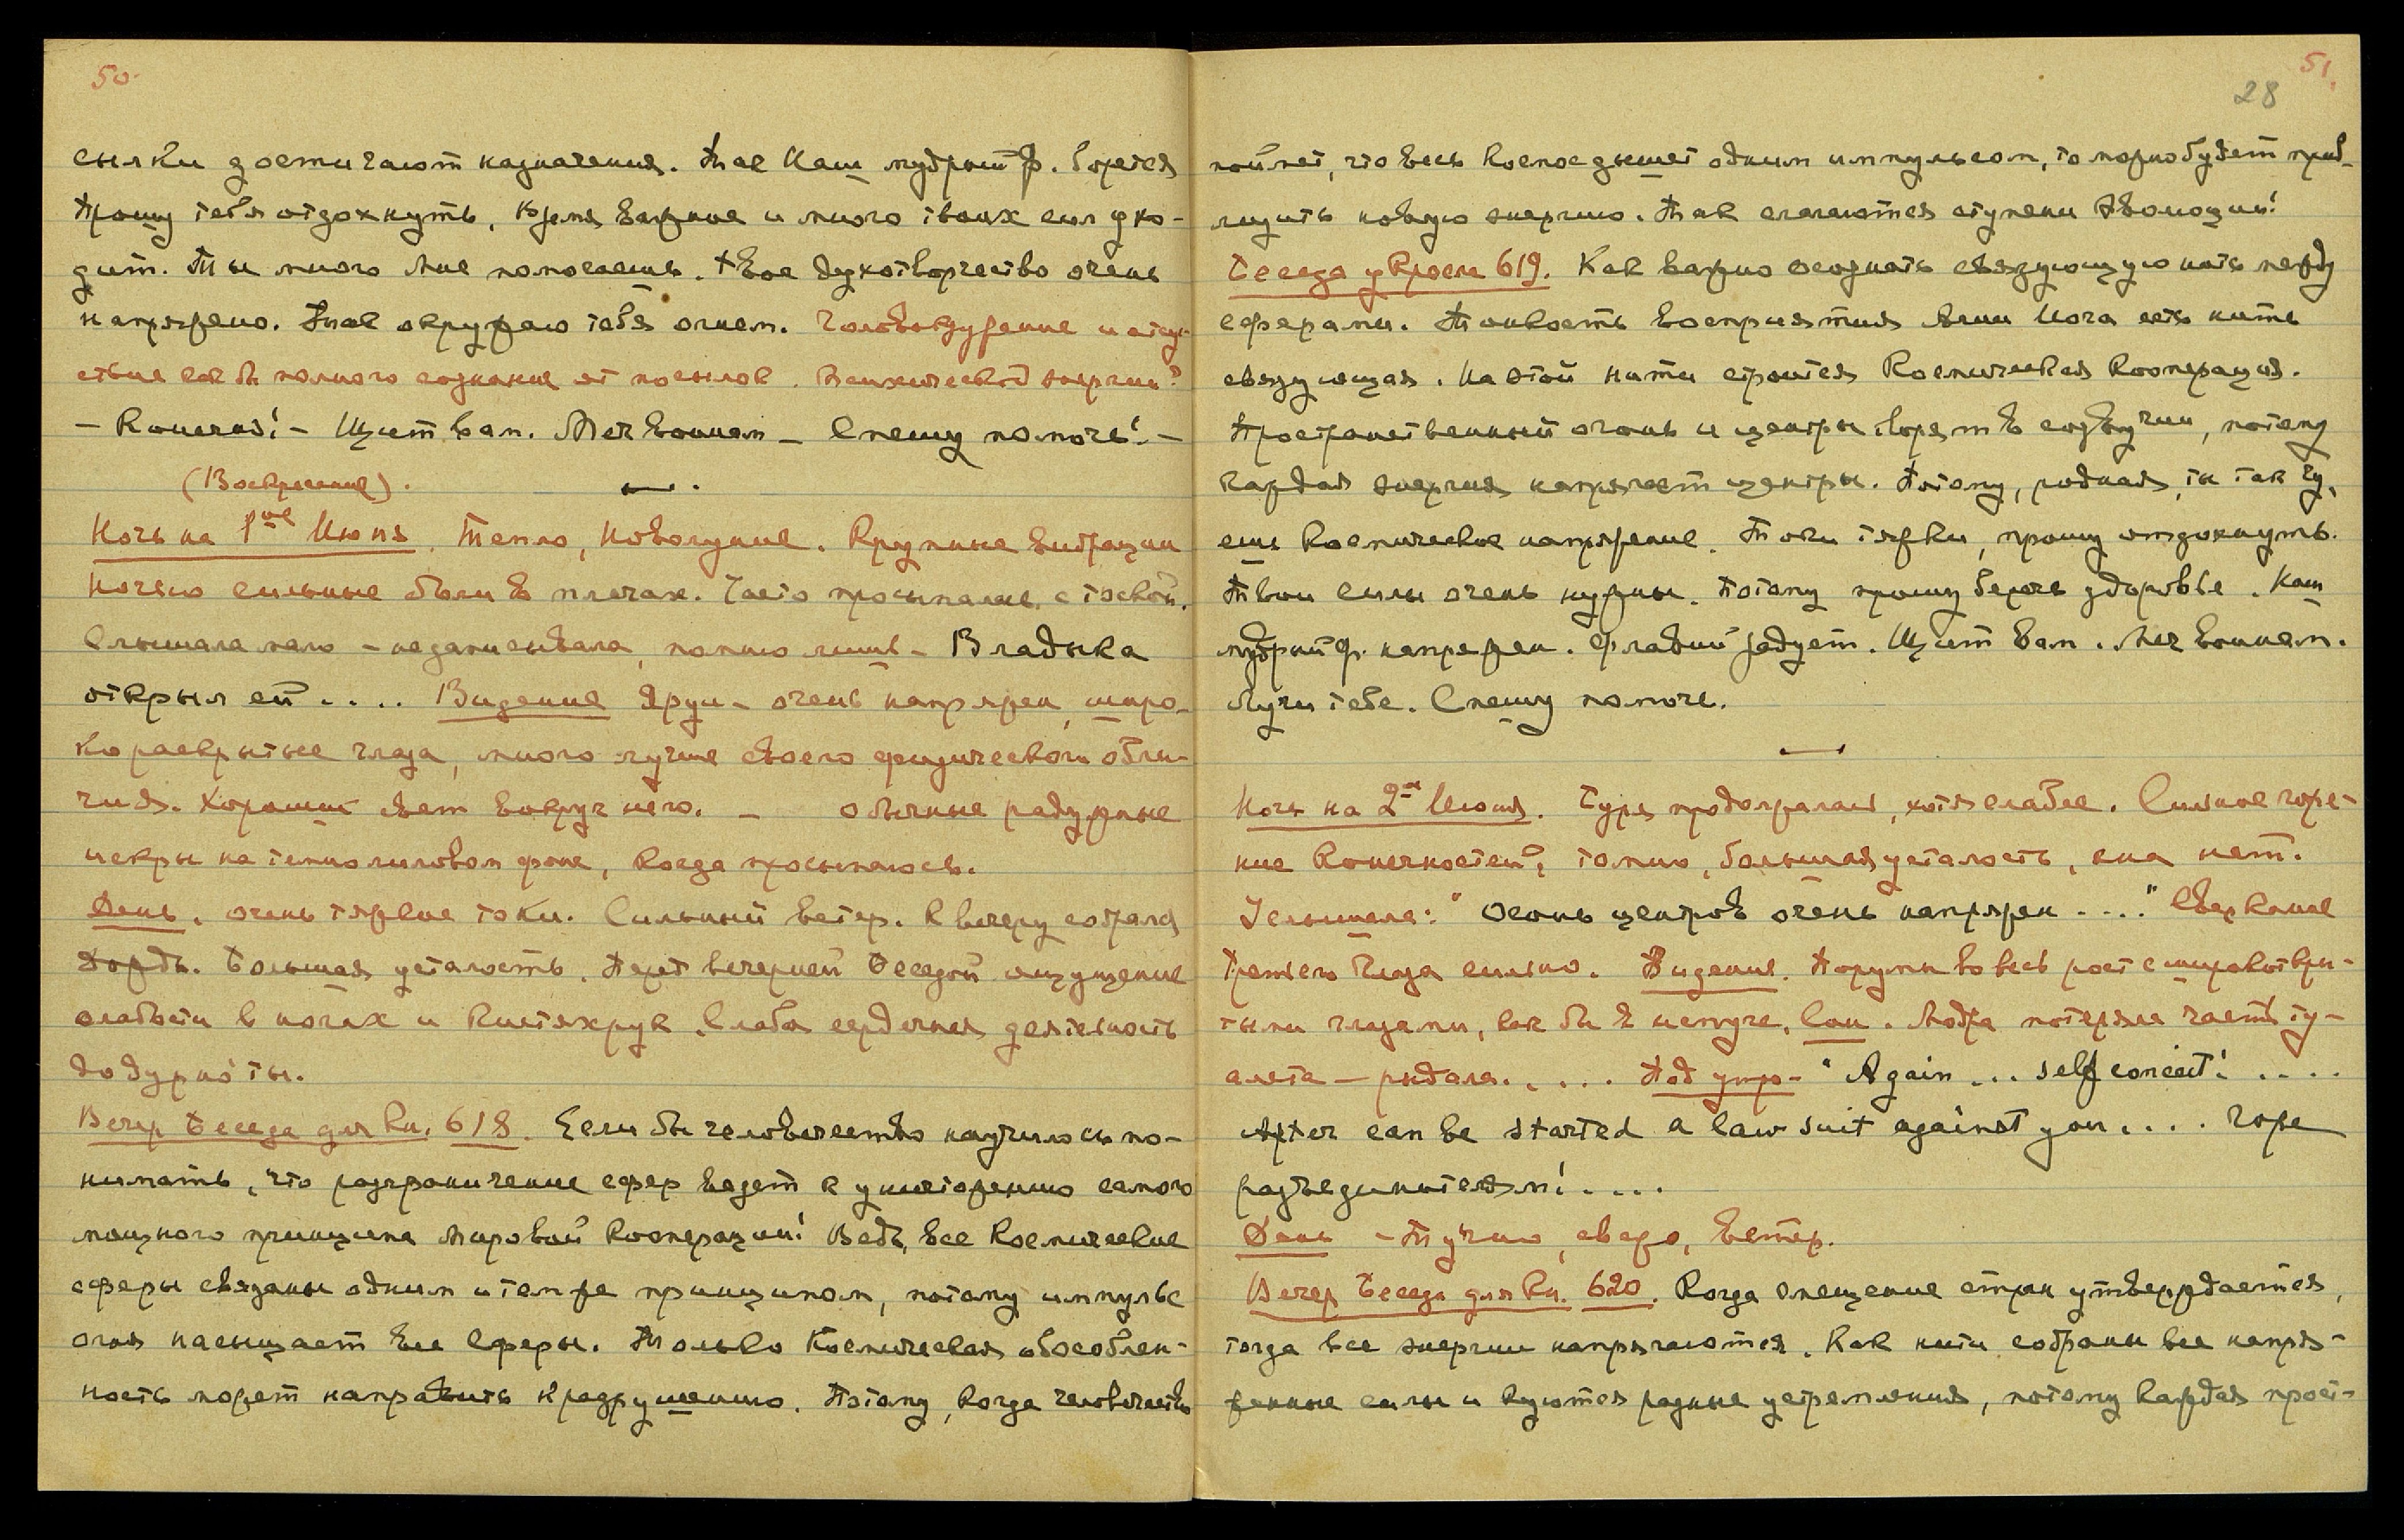 50.
сылки достигают назначения. Так Наш мудрый Ф. борется
Прошу тебя отдохнуть. Время важное и много твоих сил ухо-
дит. Ты много Мне помогаешь. Твое духотворчество очень
напряжено. Так окружаю тебя огнем. Головокружение и отсут-
ствие как бы полного сознания от посылок. Психической энергии?
– Конечно! – Щит вам. Меч воинам – Спешу помочь! –
(Воскресение).
Ночь на 1ое Июня. Тепло, Новолуние. Крупные вибрации
Ночью сильные были в плечах. Часто просыпалась с тоской.
Слышала мало – не записывала, помню лишь – Владыка
открыл ей .... Видение Яруи – очень напряжен, широ-
ко раскрытые глаза, много лучше своего физического обли-
чия. Хороший свет вокруг него. – Обычные радужные
искры на темнолиловом фоне, когда просыпаюсь.
День. Очень тяжкие токи. Сильный ветер. К вечеру собрался
Дождь. Большая усталость. Перед вечерней Беседой ощущение
слабости в ногах и кистях рук. Слабая сердечная деятельность
до дурноты.
Вечер Беседа для Кн. 618. Если бы человечество научилось по-
нимать, что разграничение сфер ведет к уничтожению самого
мощного принципа Мировой Кооперации! Ведь все Космические
сферы связаны одним и тем же принципом, потому импульс
огня насыщает все Сферы. Только Космическая обособлен-
ность может направить к разрушению. Потому, когда человечество
51.
28
поймет, что весь Космос дышет одним импульсом, то можно будет прибл-
лизить новую энергию. Так слагаются ступени Эволюции!
Беседа у Кросел 619. Как важно осознать связующую нить между
сферами. Тонкость восприятия Агни Йога есть нить
связующая. На этой нити строится Космическая Кооперация.
Пространственный огонь и центры горят в созвучии, потому
каждая энергия напрягает центры. Потому, родная, ты так чу-
ешь Космическое напряжение. Токи тяжки, прошу отдохнуть.
Твои Силы очень нужны. Потому прошу беречь здоровье. Наш
мудрый Ф. напряжен. Флавий радует. Щит вам. Меч воинам.
Лучи тебе. Спешу помочь.
Ночь на 2ое Июня. Буря продолжалась, хотя слабее. Сильное горе-
ние конечностей, томно, большая усталость, сна нет.
Услышала: "Огонь центров очень напряжен ...." Сверкание
Третьего Глаза сильно. Видение. Порумы во весь рост с широко откры-
тыми глазами, как бы в испуге. Сон. Модра потеряла часть ту-
алета – рыдала ..... Под утро – "Again ... self conceit! ....
After can be started a law suit against you .... Горе
разъединителям! ....
День – Тучно, свежо, ветер.
Вечер Беседа для Кн. 620. Когда смещение стран утверждается,
тогда все энергии напрягаются. Как нити собраны все напря-
женные силы и куются разные устремления, потому каждая прост-